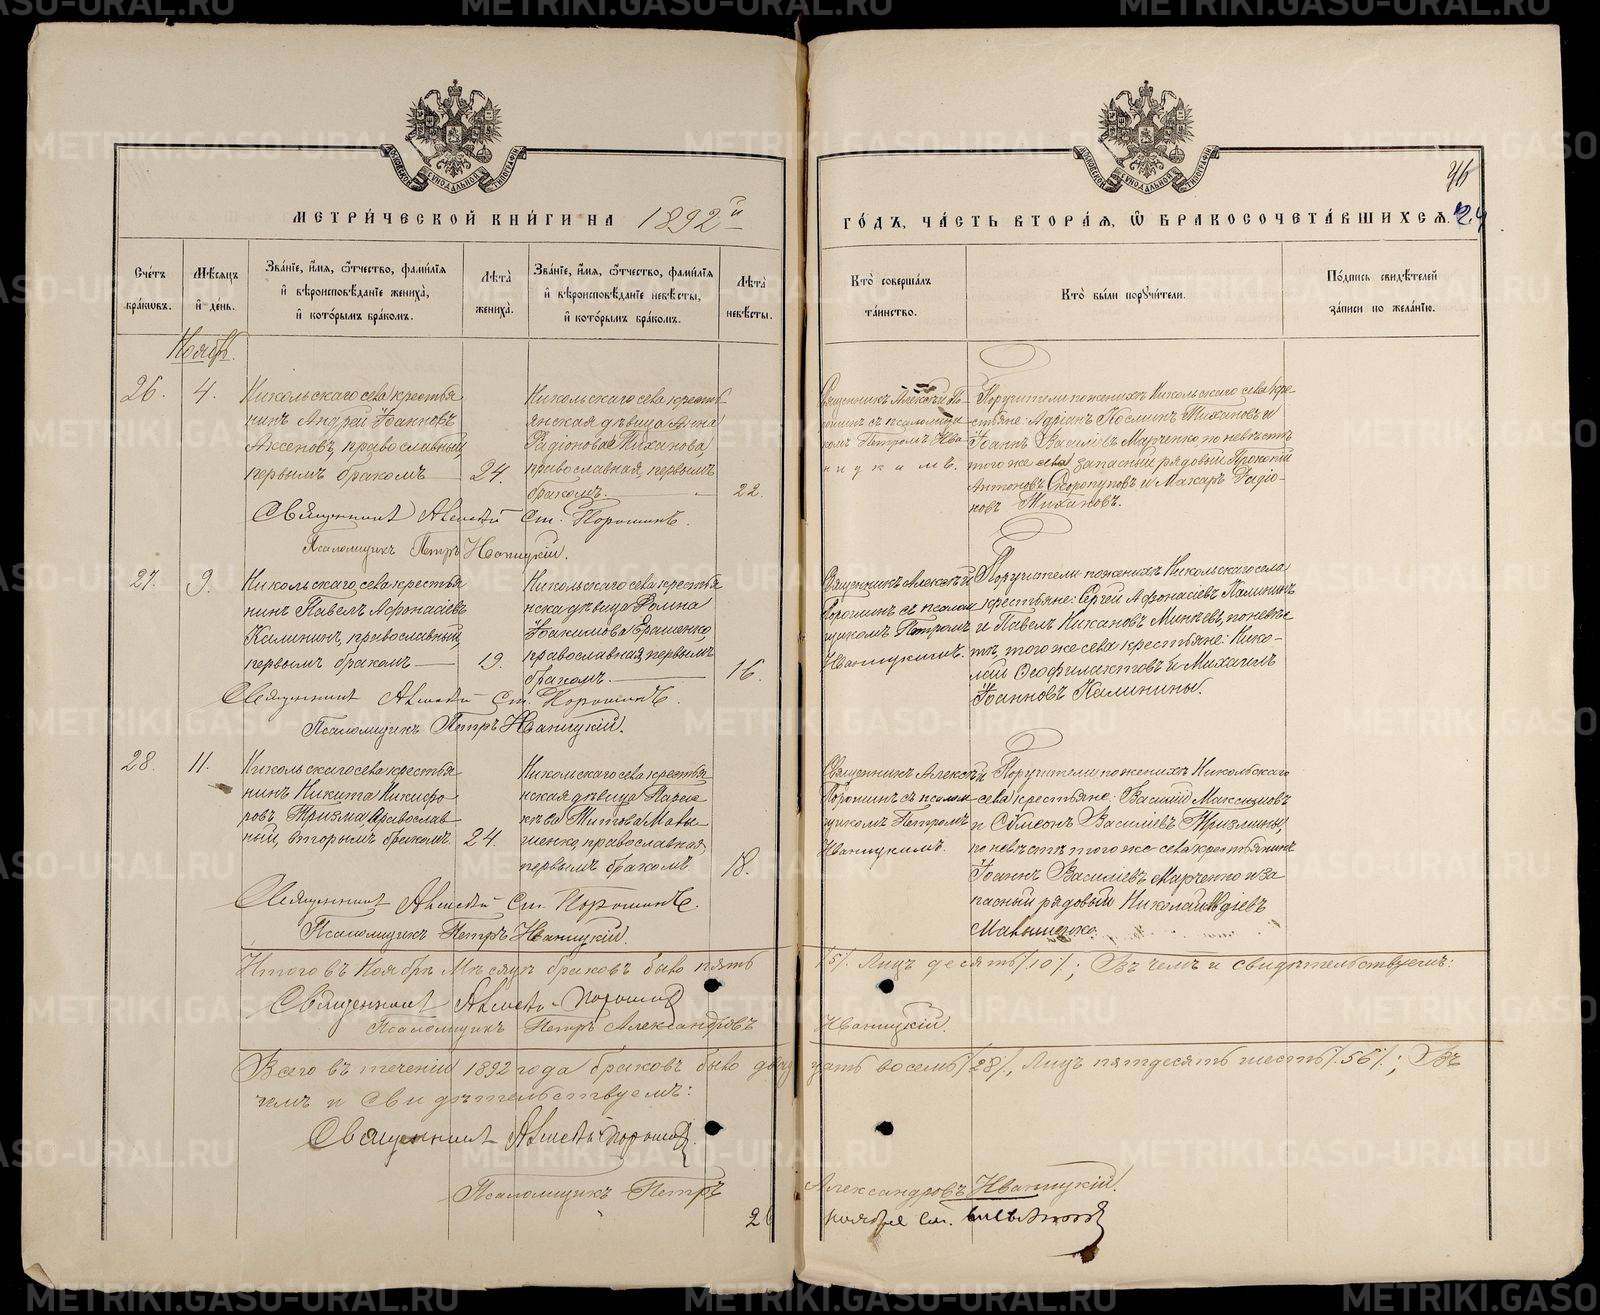 МЕТРИ́ЧЕСКОЙ КНИ́ГИ НА 1892й
ГО́ДЪ, ЧА́СТЬ ВТОРА́Я, Ѽ БРАКОСОЧЕТА́ВШИХСЯ. 24
Сче́тъ бра́ковъ.
Мѣ́сяцъ и҆ де́нь.
Зва́нїе, и҆́мя, ѻ҆́тчество, фамѝлїя
и҆ вѣроисповѣ́данїе жениха̀,
и҆ кото́рымъ бра́комъ.
Лѣта̀ жениха̀.
Зва́нїе, и҆́мя, ѻ҆́тчество, фамѝлїя
и҆ вѣроисповѣ́данїе невѣ́сты,
и҆ кото́рымъ бра́комъ.
Лѣта̀ невѣ́сты.
Кто̀ соверша́лъ та́инство.
Кто̀ бы́ли порꙋчи́тели.
По́дпись свидѣ́телей
за́писи по жела́нїю.
Ноябрь.
26. 4.
Никольскаго села крестья
нинъ Андрей Іоанновъ
Аксеновъ, православный,
первымъ бракомъ 24.
Никольскаго села кресть
янская дѣвица Анна
Радіонова Тиханова,
православная, первымъ
бракомъ. 22.
Священникъ Алексѣй По
рошинъ съ псаломщи
комъ Петромъ Ива
ницкимъ.
Поручители по женихѣ Никольскаго села кре
стьяне: Адріанъ Косминъ Тихановъ и
Іоаннъ Василіевъ Марченко по невѣстѣ
того же села запасный рядовый Прокопій
Антоновъ Скоропуповъ и Макаръ Радіо
новъ Тихановъ.
Священникъ Алексѣй Ст. Порошинъ.
Псаломщикъ Петръ Иваницкій.
27. 9.
Никольскаго села крестья
нинъ Павелъ Афонасіевъ
Калининъ, православный,
первымъ бракомъ 19.
Никольскаго села крестья
нска дѣвица Фомина
Іоакимова Ерашенко,
православная, первымъ
бракомъ. 16.
Священникъ Алексѣй
Порошинъ съ псалом
щикомъ Петромъ
Иваницкимъ.
Поручители по женихѣ Никольскаго села
крестьяне: Сергей Афонасіевъ Калининъ
и Павелъ Никановъ Минѣевъ, по невѣс
тѣ, того же села крестьяне: Нико
лай Ѳеофилактовъ и Михаилъ
Іоанновъ Калинины.
Священникъ Алексѣй Ст. Порошинъ.
Псаломщикъ Петръ Иваницкій.
28. 11.
Никольскаго села крестья
нинъ Никита Никифо
ровъ Тризма православ
ный, вторымъ бракомъ. 24.
Никольскаго села крестья
нская дѣвица Парас
кѣва Титова Маты
шенко, православная,
первымъ бракомъ. 18.
Священникъ Алексѣй
Порошинъ съ псалом
щикомъ Петромъ
Иваницкимъ.
Поручители по женихѣ Никольскаго
села крестьяне: Василій Максимовъ
и Сѵмеонъ Василіевъ Тризмины,
по невѣстѣ того же села крестьянинъ
Іоаннъ Василіевъ Марченко и за
пасный рядовый Николай Авдіевъ
Матышенко.
Священникъ Алексѣй Ст. Порошинъ.
Псаломщикъ Петръ Иваницкій.
Итого въ Ноябрѣ Мѣсяцѣ браковъ было пять /5/. Лицъ десять /10/; Въ чемъ и свидѣтельствуемъ:
Священникъ Алексѣй Порошинъ
Псаломщикъ Петръ Александровъ Иваницкій.
Всего въ теченіи 1892 года браковъ было двад цать восемь /28/, Лицъ пятдесять шесть /56/; Въ
чемъ и свидѣтельствуемъ:
Священникъ Алексѣй Порошинъ.
Псаломщикъ Петръ Александровъ Иваницкій.
METRIKI.GASO-URAL.RU